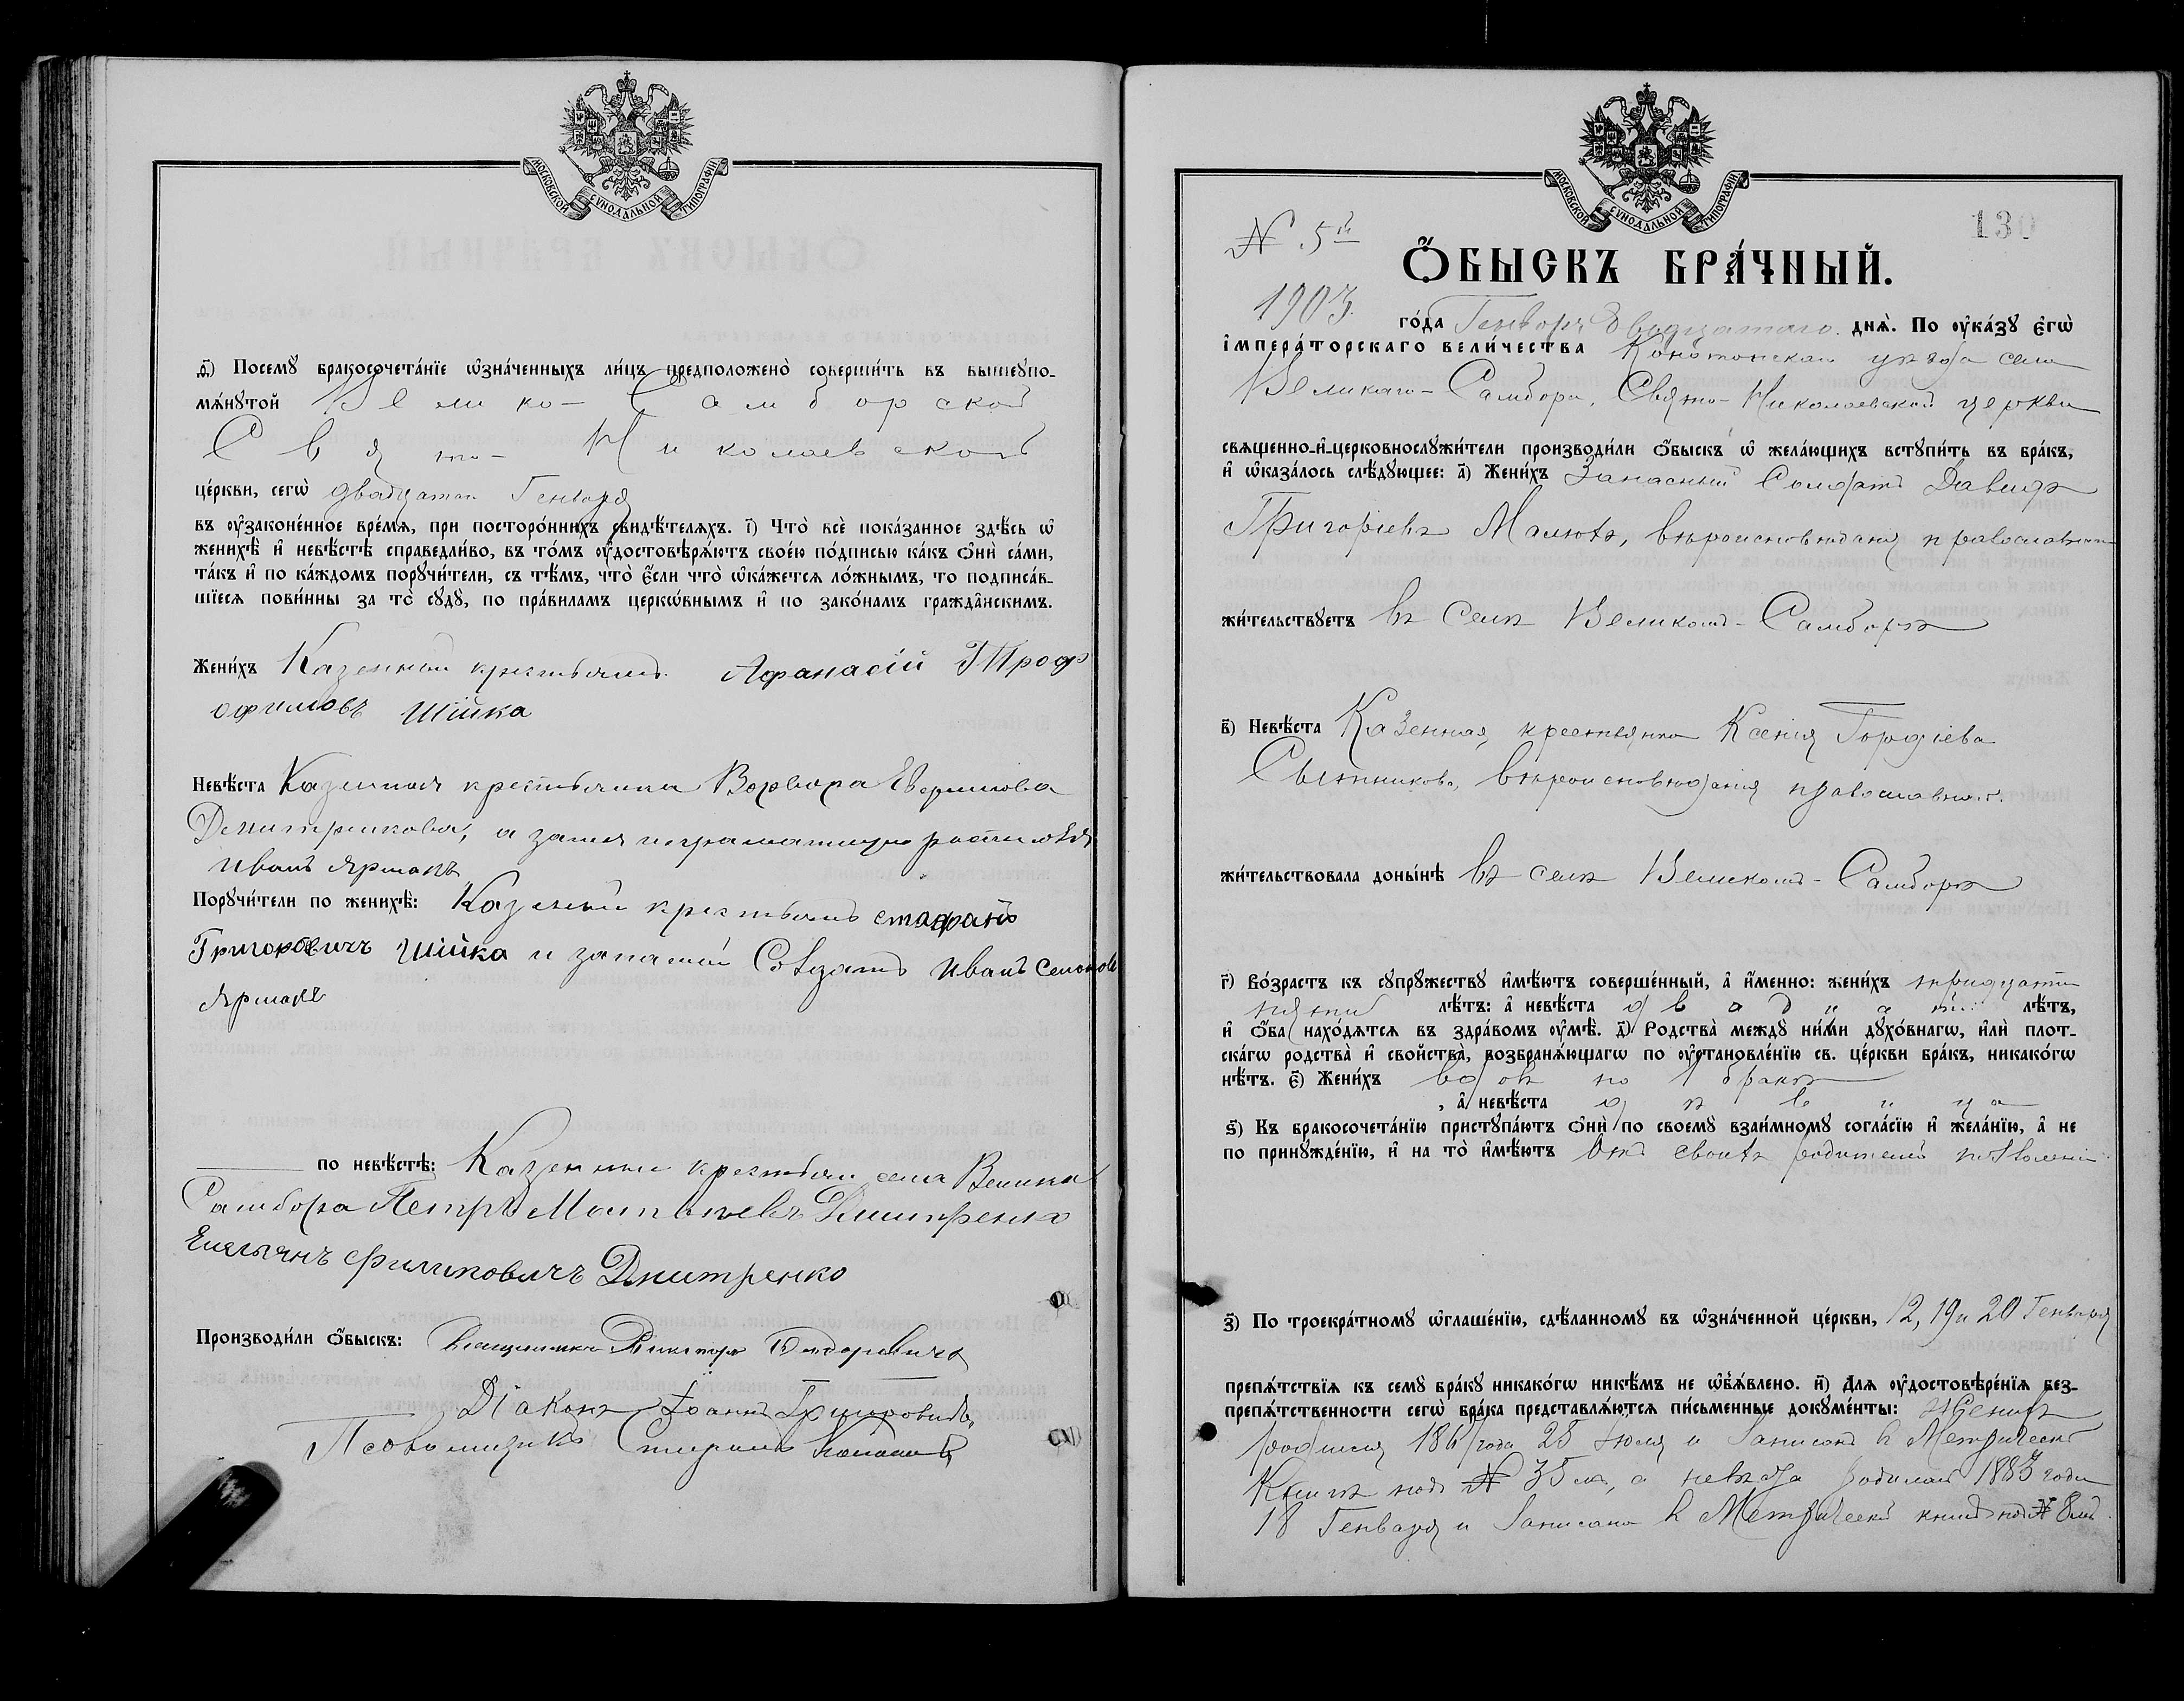 МОСКОВСКОЙ СѴНОДАЛЬНОЙ ТИПОГРАФІИ
ѳ҃) Посемꙋ̀ бракосочета́нїе ѡ҆зна́ченныхъ ли́цъ предположено̀ соверши́ть въ вышеꙋпо-
мѧ́нꙋтой Велико-Самборской
Свято-Николаевской
це́ркви, сегѡ̀ двадцатаго Генваря
въ ᲂу҆законе́нное вре́мѧ, при посторо́ннихъ свидѣ́телѧхъ. і҃) Что̀ всѐ пока́занное здѣ́сь ѡ҆
женихѣ̀ и҆ невѣ́стѣ справедли́во, въ то́мъ ᲂу҆достовѣрѧ́ютъ свое́ю по́дписью ка́къ ѻ҆нѝ са́ми,
та́къ и҆ по ка́ждомъ порꙋчи́тели, съ тѣ́мъ, что̀ є҆́сли что̀ ѡ҆ка́жетсѧ ло́жнымъ, то подписа́в-
шїесѧ пови́нны за то̀ сꙋдꙋ̀, по пра́виламъ церкѡ́внымъ и҆ по зако́намъ гражда̑нскимъ.
Жени́хъ Казенный крестьянинъ Афанасій Троф
офимовъ Шійка
Невѣ́ста Казенная крестьянка Варвара
а за нея неграматную
Иванъ Ярмакъ
Порꙋчи́тели по женихѣ̀: Казенный крестьянинъ
Григоровичъ Шійка и запасный Иванъ
Ярмакъ
по невѣ́стѣ: Казенные крестьяни села Велика
Самбора Петръ Дмитренко
Емельянъ Филиповичъ Дмитренко
Производи́ли ѻ҆́быскъ: Священникъ
Діаконъ Іоаннъ
Псаломщикъ
МОСКОВСКОЙ СѴНОДАЛЬНОЙ ТИПОГРАФІИ
130
№ 5й
Ѻ҆́БЫСКЪ БРА́ЧНЫЙ.
1903 го́да Генваря двадцатаго днѧ̀. По ᲂу҆ка́зꙋ є҆гѡ̀
і҆мпера́торскаго вели́чества Конотопскаго уѣзда села
Великаго-Самбора, Свято-Николаевской церкви
свѧщенно-и҆-церковнослꙋжи́тели производи́ли ѻ҆́быскъ ѡ҆ жела́ющихъ встꙋпи́ть въ бра́къ,
и҆ ѡ҆каза́лось слѣ́дꙋющее: а҃) Жени́хъ Запасный Солдатъ Давидъ
Григоріевъ Малюта, вѣроисповѣданія православнаго
жи́тельствꙋетъ въ селѣ Великомъ-Самборѣ
в҃) Невѣ́ста Казенная крестьянка Ксенія Гордіева
Сытникова, вѣроисповѣданія православнаго.
жи́тельствовала донынѣ въ селѣ Великомъ-Самборѣ
г҃) Во́зрастъ къ сꙋпрꙋ́жествꙋ и҆мѣ́ютъ соверше́нный, а҆ и҆́менно: жени́хъ тридцати
пяти лѣ́тъ: а҆ невѣ́ста двадцати лѣ́тъ,
и҆ ѻ҆́ба нахо́дѧтсѧ въ здра́вомъ ᲂу҆мѣ̀. д҃) Родства̀ междꙋ̀ ни́ми дꙋхо́внагѡ, и҆лѝ плот-
ска́гѡ родства̀ и҆ свойства̀, возбранѧ́ющагѡ по ᲂу҆становле́нїю св. це́ркви бра́къ, никако́гѡ
нѣ́тъ. є҃) Жени́хъ вдовъ по 1 бракѣ
, а҆ невѣ́ста дѣвица
ѕ҃) Къ бракосочета́нїю пристꙋпа́ютъ ѻ҆нѝ по своемꙋ̀ взаи́мномꙋ согла́сїю и҆ жела́нїю, а҆ не
по принꙋжде́нїю, и҆ на то̀ и҆мѣ́ютъ отъ своихъ родителей
з҃) По троекра́тномꙋ ѡ҆глаше́нїю, сдѣ́ланномꙋ въ ѡ҆зна́ченной це́ркви, 12, 19 и 20 Генваря
препѧ́тствїѧ къ семꙋ̀ бра́кꙋ никако́гѡ никѣ́мъ не ѡ҆б̾ѧ́влено. и҃) Длѧ ᲂу҆достовѣре́нїѧ без-
препѧ́тственности сегѡ̀ бра́ка представлѧ́ютсѧ пи́сьменные докꙋме́нты: Женихъ
родился года 25 Іюля и записанъ въ Метрической
Книгѣ подъ № 35мъ, а невѣста родилась 1883 года
18 Генваря и записана въ Метрической книгѣ подъ № 8мъ